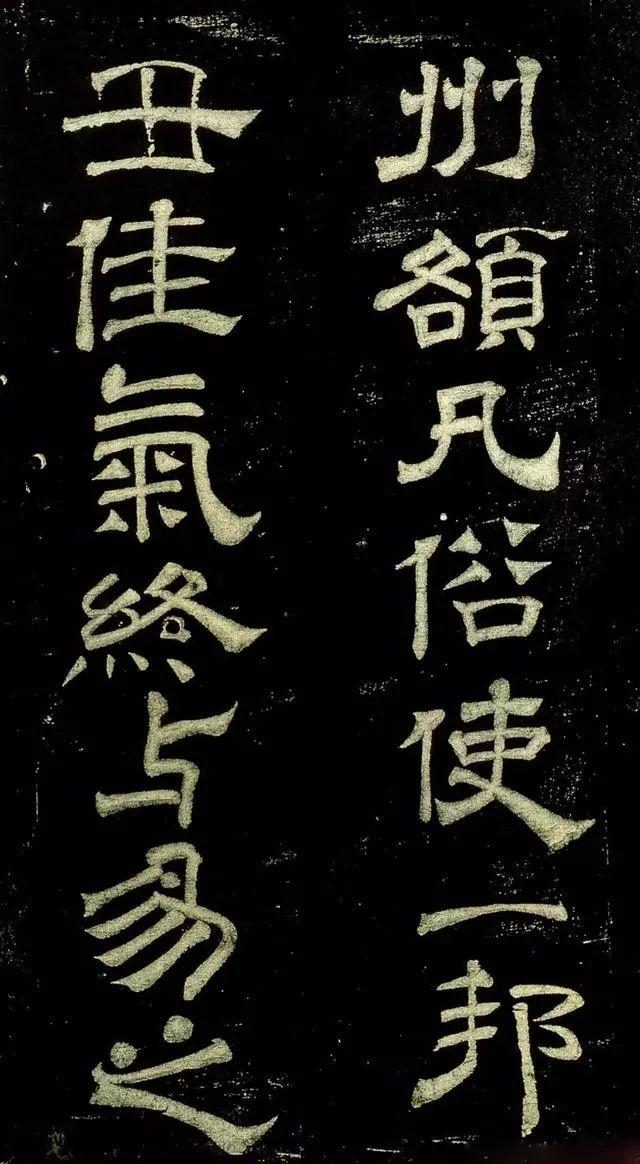 州頟凡俗使一邦
丑佳氣終与易之